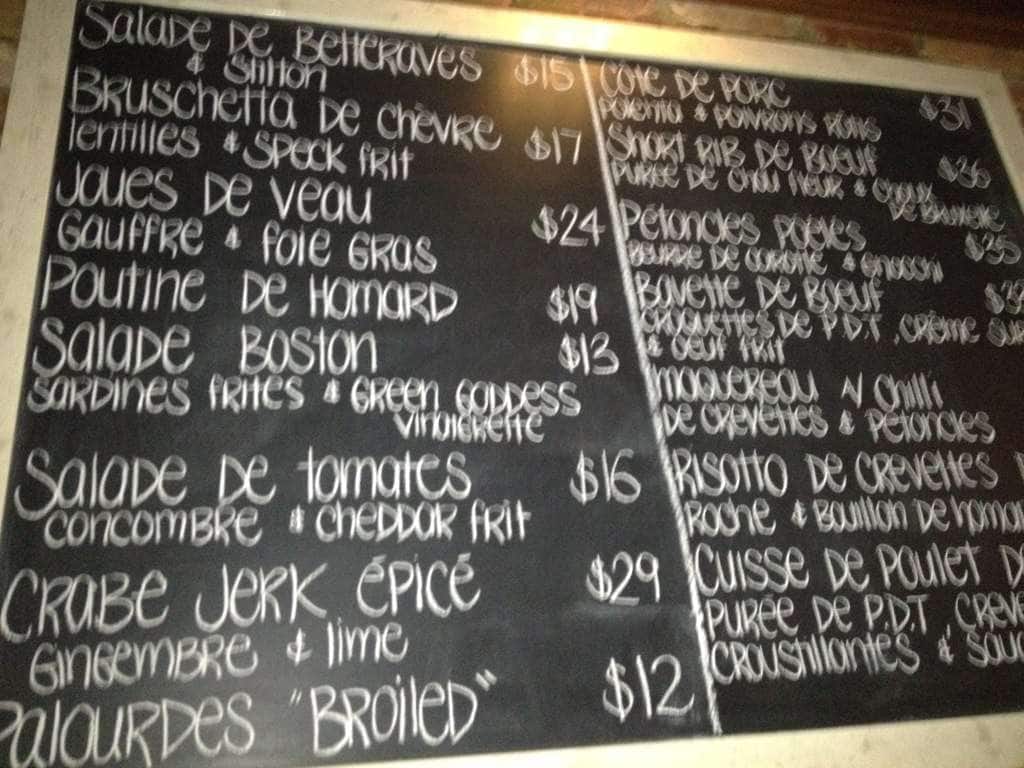 Salade de Betteraves $15
& Stilton
Bruschetta de chèvre $17
lentilles & Speck frit
Joues de veau $24
Gauffre & foie Gras
Poutine de Homard $19
Salade Boston $13
Sardines frites & Green Goddess
vinaigrette
Salade de tomates $16
concombre & cheddar frit
Crabe Jerk épicé $29
Gingembre & lime
Palourdes "Broiled" $12
Côte de Porc $31
Polenta & poivrons rôtis
Short Rib de Boeuf $36
Purée de chou fleur & choux
de Bruxelle
Pétoncles poêlés $35
Beurre de carotte & Gnocchi
Bavette de Boeuf
Croquettes de P.D.T, crème
& oeuf frit
Maquereau Chilli
de crevettes & Pétoncles
Risotto de crevettes
Roche & Bouillon de
Cuisse de Poulet
purée de P.D.T
croustillantes &